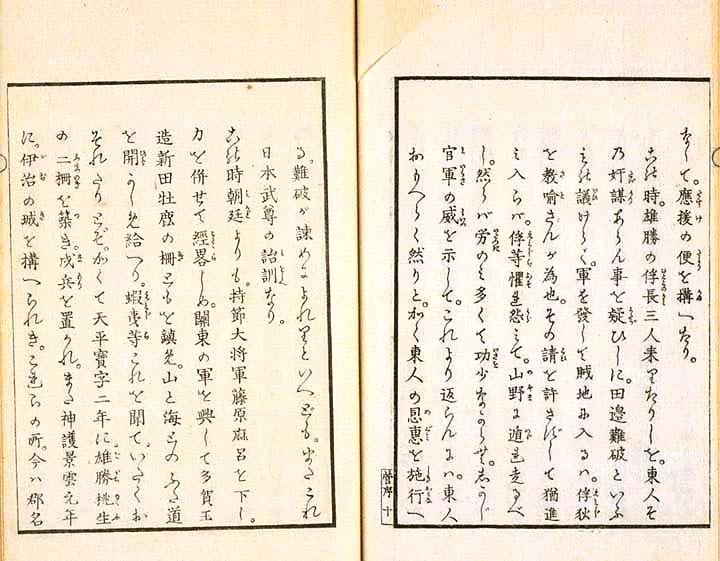 なして。應後の便を構へたり。
この時。雄勝の俘長三人来りたりしを。東人そ
乃奸謀あらん事を疑ひしに。田邊難破といふ
もの議けらく。軍を發して賊地に入るハ。俘狄
を教喩さんが為也。その請を許さずして猶進
ミ入らバ。俘等懼れ怨ミて。山野に遁れ走るべ
し。然らバ労のミ多くて功少なからむ。しかじ
官軍の威を示して。これより返らんにハ。東人
おもへらく然りと。かく東人の恩惠を施行へ
序 十
る。難破が諫めによれりといへども。またこれ
日本武尊の詒訓なり。
この時朝廷よりも。持節大将軍藤原麻呂を下し。
力を併せて經畧しめ。關東の軍を興して多賀玉
造新田牡鹿の柵どもを鎮め。山と海とのふた道
を開かしめ給へり。蝦夷等これを聞て。いたくお
それたりとぞ。かくて天平寶字二年に。雄勝桃生
の二柵を築き。戍兵を置かれ。また神護景雲元年
に。伊治の城を構へられき。これらの所。今ハ郡名